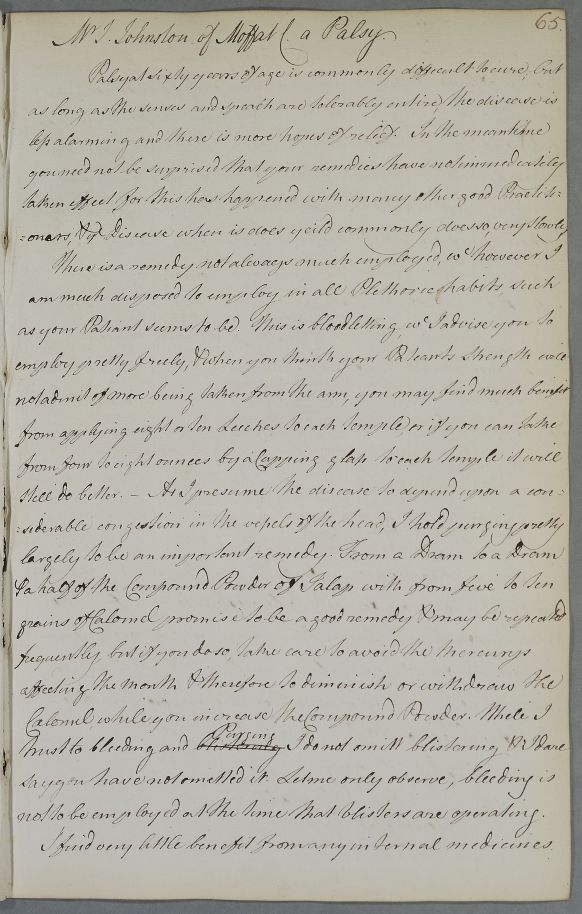 65.
Mr. J. Johnston of Moffat C. a Palsy.
Palsy at sixty years of age is commonly difficult to cure, but
as long as the senses and speach are tolerably entire, the disease is
less alarming and there is more hopes of relief. In the meantime
you need not be surprised that your remedies have not immediately
taken effect for this has happened with many other good Practiti=
=oners, & ye Disease when is does yeild commonly does so, very slowly
There is a remedy not always much employed, wc. however I
am much disposed to employ in all Plethoric habits, such
as your Patiant seems to be. This is bloodletting wc. I advise you to
employ pretty freely, & when you think your Patiants strength will
not admit of more being taken from the arm, you may find much benefit
from applying eight or ten Leeches to each temple or if you can take
from four to eight ounces by a Cupping glass to each temple it will
still do better. – As I presume the disease to depend upon a con=
=siderable congestion in the vessels of the head, I hold purging pretty
largely to be an important remedy. From a Dram to a dram
& a half of the Compound Powder of Jalap with from five to ten
grains of Calomel promise to be a good remedy & may be repeated
frequently, but if you do so, take care to avoid the mercurys
affecting the mouth & therefore to diminish or withdraw the
Calomel while you increase the Compound Powder. While I
Purging
trust to bleeding and blistering I do not omitt blistering & I dare
say you have not ometted it. Let me only observe, bleeding is
not to be employed at the time that blisters are operating.
I find very little benefit from any internal medicines.